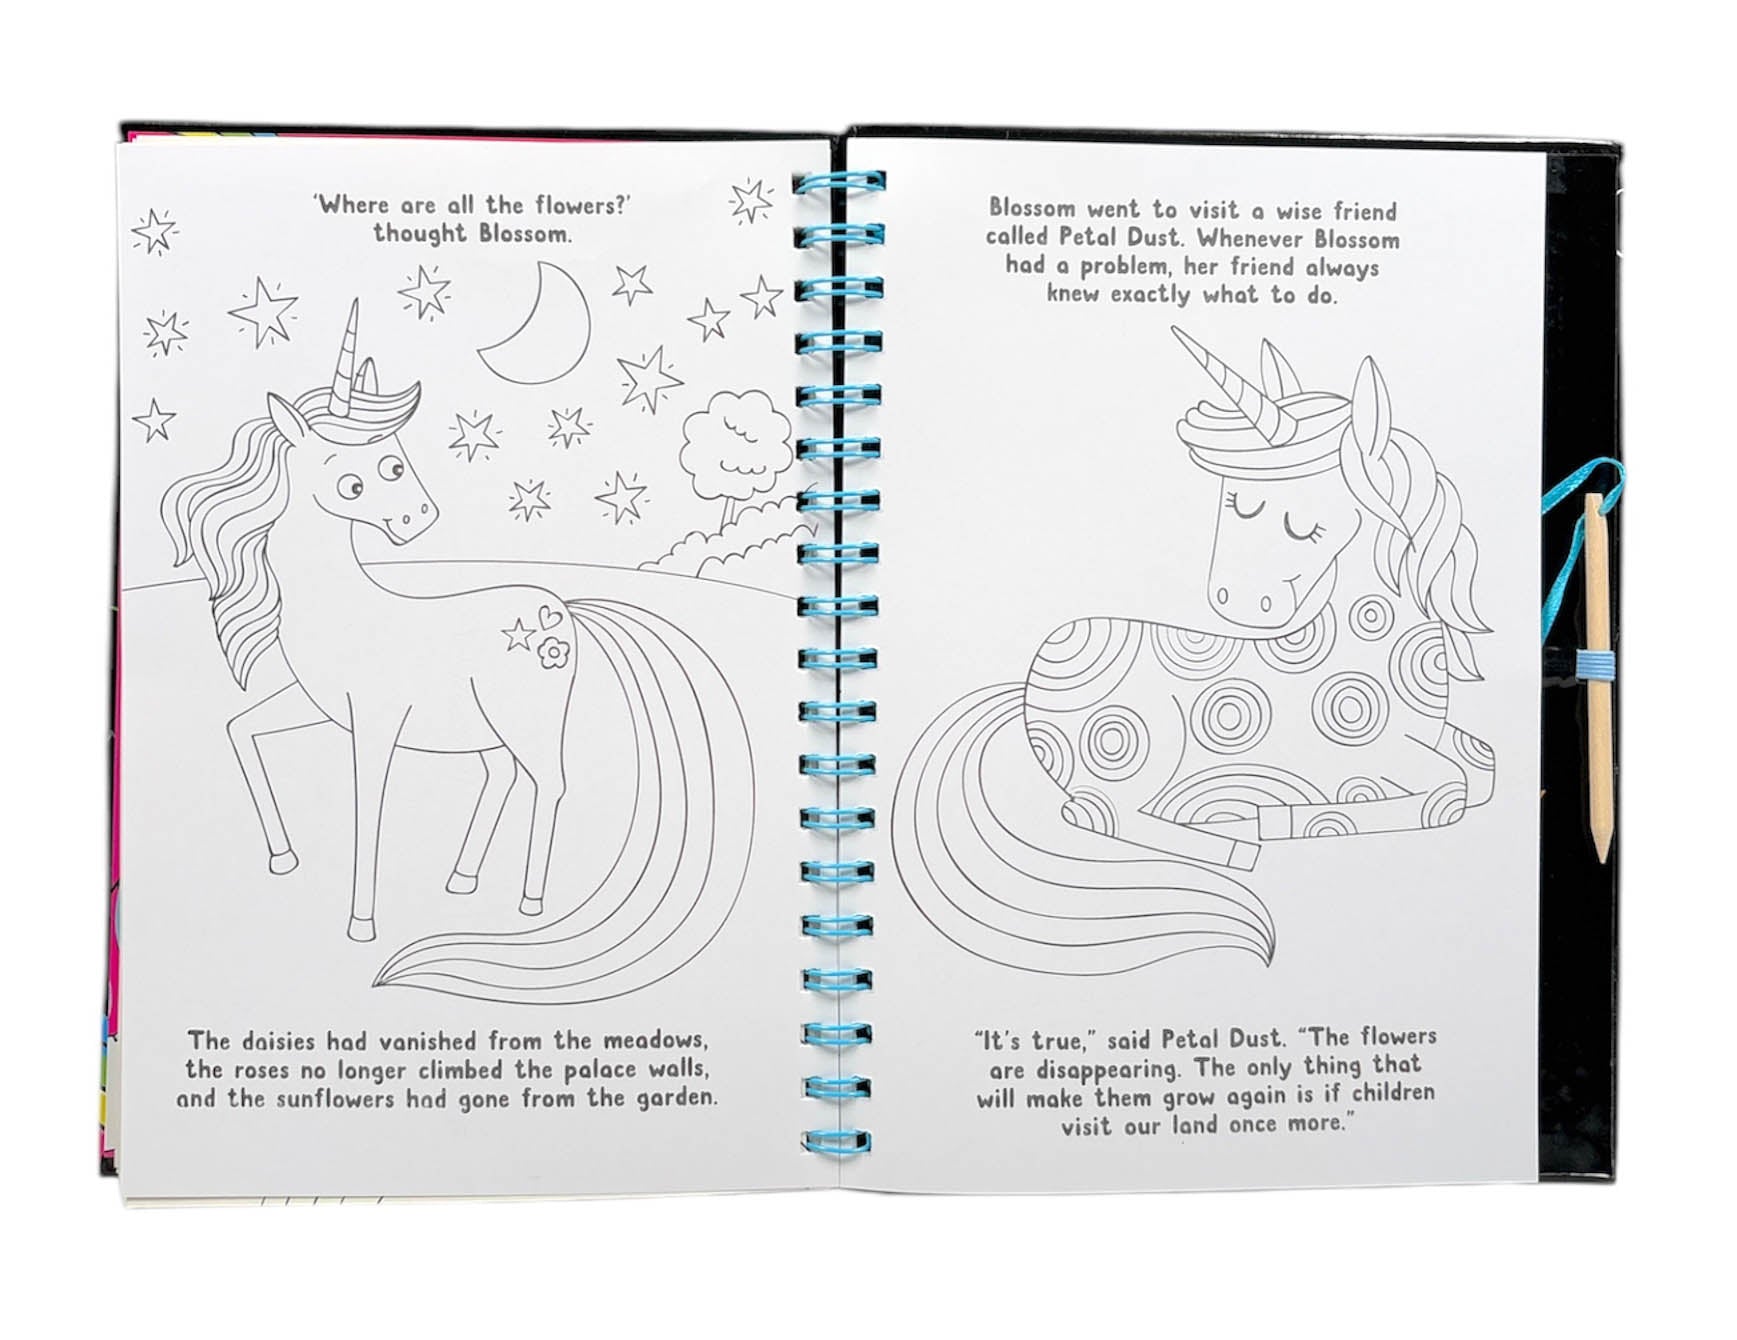 ‘Where are all the flowers?’
thought Blossom.
The daisies had vanished from the meadows,
the roses no longer climbed the palace walls,
and the sunflowers had gone from the garden.
Blossom went to visit a wise friend
called Petal Dust. Whenever Blossom
had a problem, her friend always
knew exactly what to do.
“It's true,” said Petal Dust. “The flowers
are disappearing. The only thing that
will make them grow again is if children
visit our land once more.”